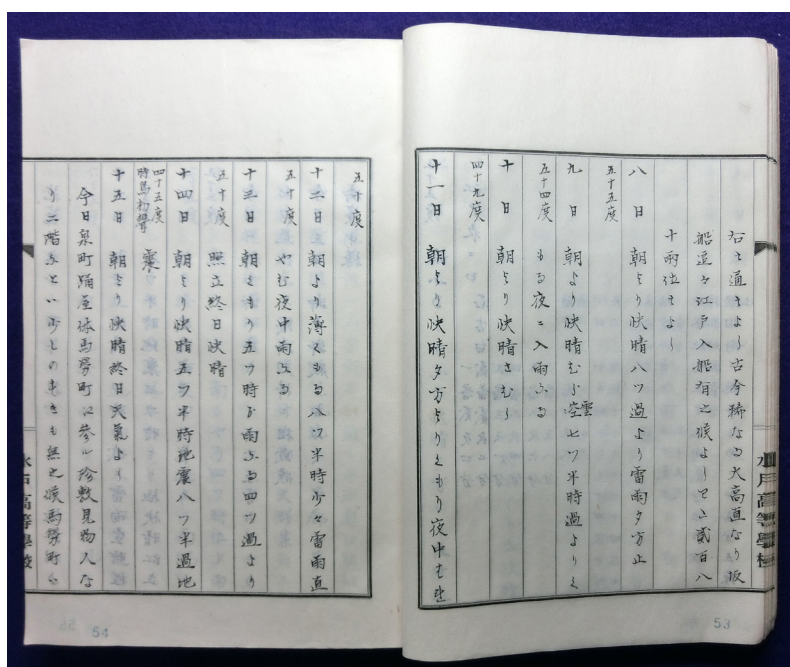 右ニ通すよし古今稀なる大高直なり坂
船近々江戸入船有之候よし
十両位すよし
八日 朝より快晴八ツ過より雷雨夕方止
五十五度
九日 朝より快晴むら雲七ツ半時過よりく
五十四度 もる夜ニ入雨ふる
十日 朝より快晴さむし
四十九度
十一日 朝より快晴夕方よりくもり夜中
水戸高等學校
53
五十度
十二日 朝より薄くもる八ツ半時少々雷雨直
五十度 やむ夜中雨ふる
十三日 朝くもり五ツ時より雨ふる四ツ過より
五十度 照立終日快晴
十四日 朝より快晴五ツ半時地震八ツ半過地
四十五度 震
時鳥初聲
十五日 朝より快晴終日天氣よし
今日泉町踊屋体馬勞町江参ル珍敷見物人な
り二階など少しのあきも無之候馬勞町
水戸高等學校
54